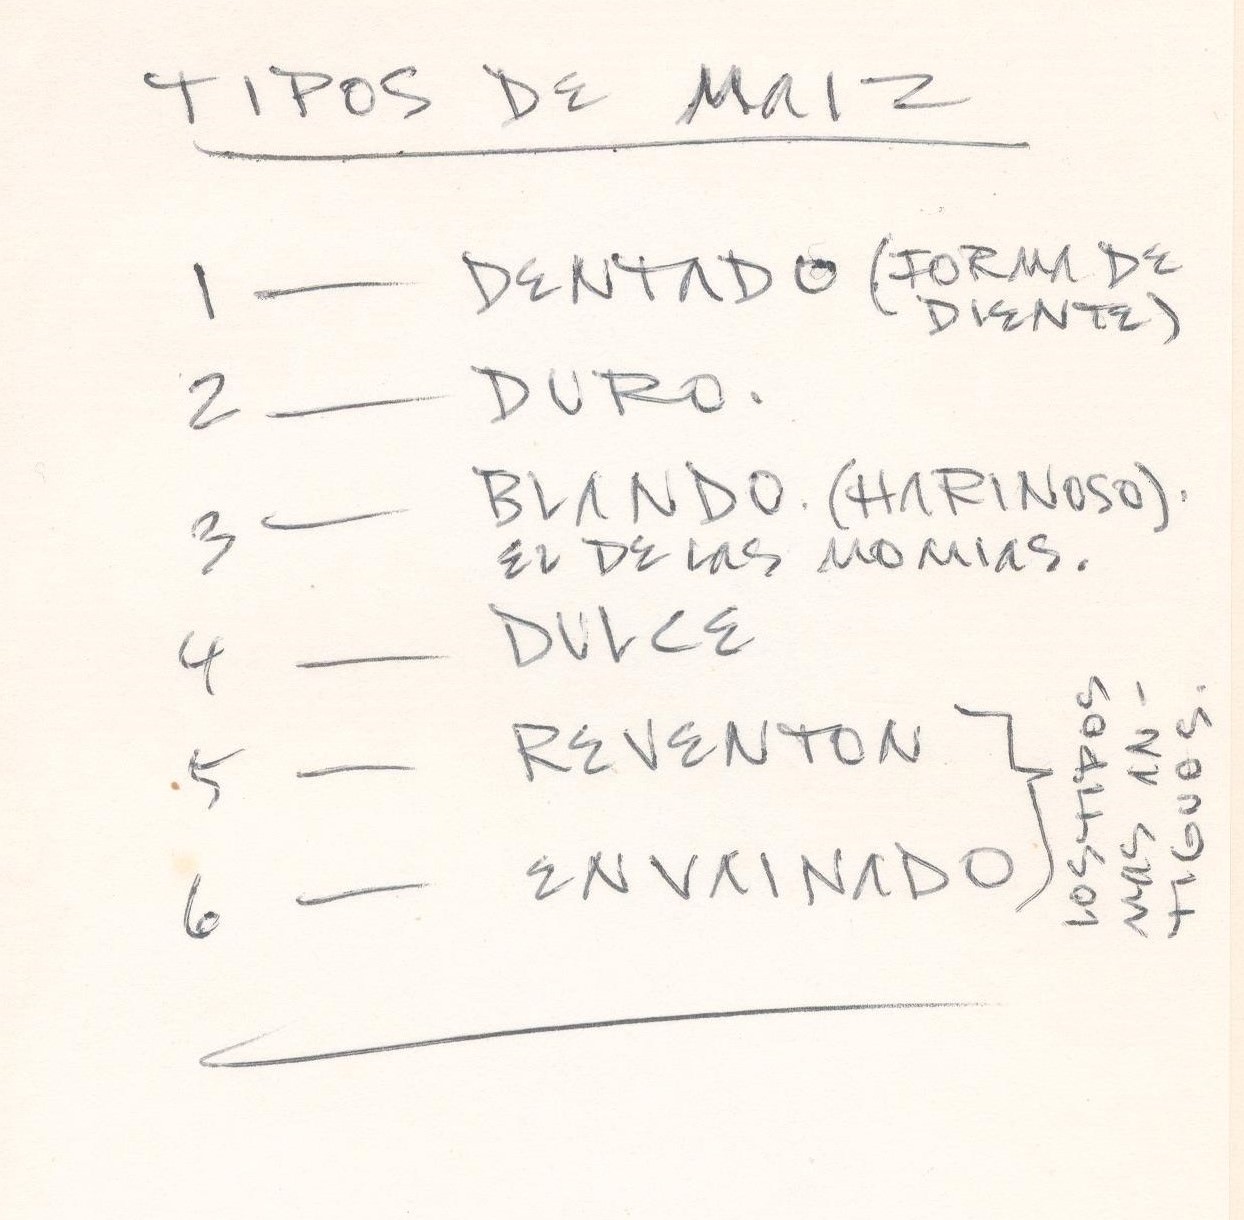 TIPOS DE MAIZ
1 — DENTADO (FORMA DE
DIENTE)
2 — DURO.
3 — BLANDO. (HARINOSO).
EL DE LAS MOMIAS.
4 — DULCE
5 — REVENTON
6 — ENVAINADO
LOS TIPOS
MAS AN-
TIGUOS.